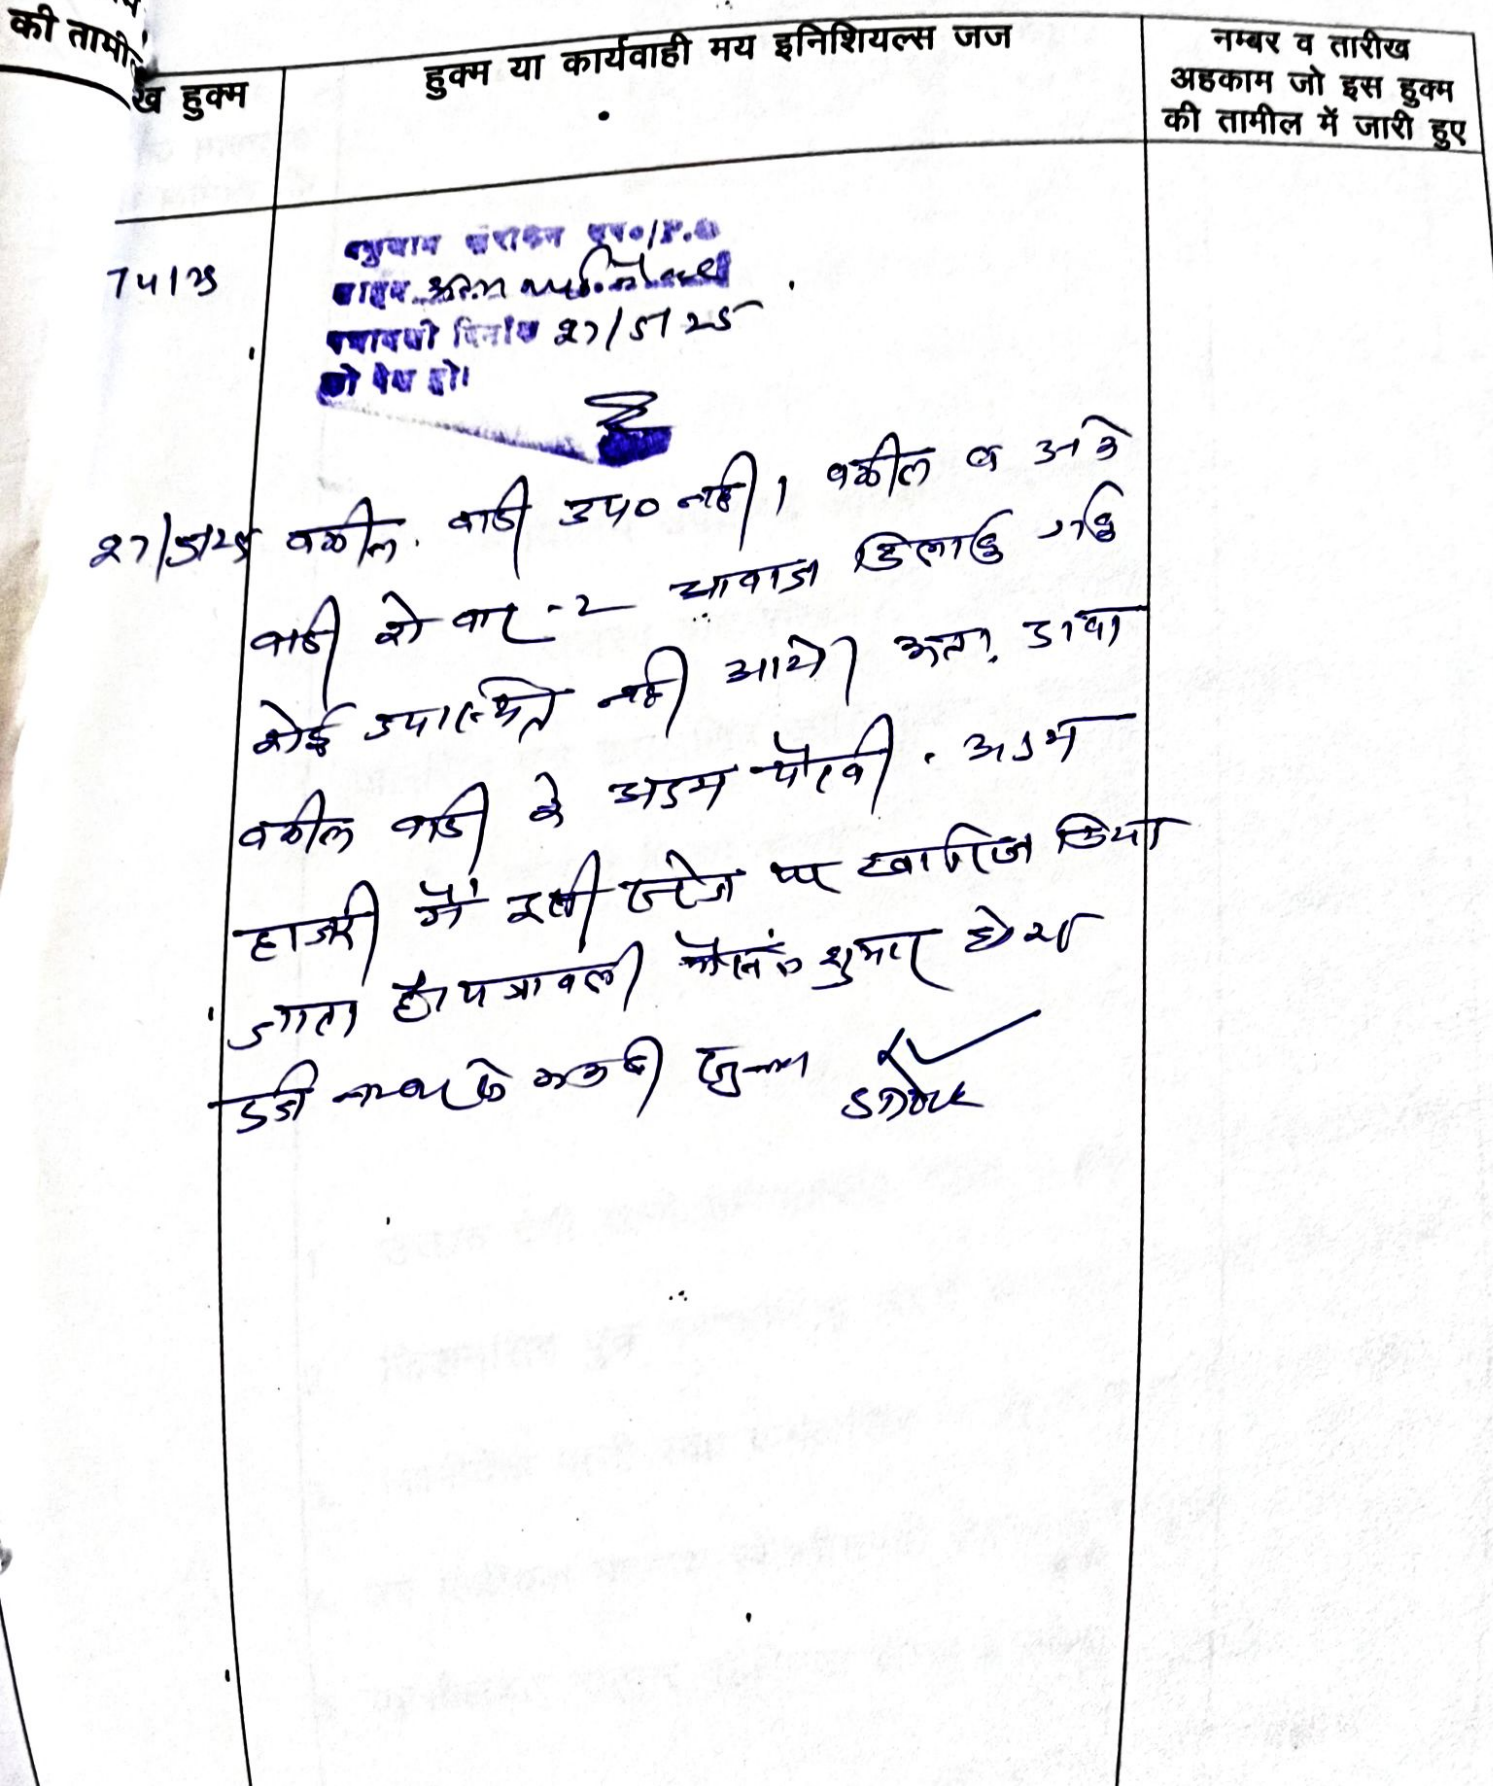 की तामील
ख हुक्म
हुक्म या कार्यवाही मय इनिशियल्स जज
नम्बर व तारीख
अहकाम जो इस हुक्म
की तामील में जारी हुए
दिनांक 27/5/25
को पेश हो।
27/5/25 वकील वादी उप० नही। वकील व
वादी को बार-2 आवाज दिलाई गई
कोई उपास्थित नही आये। अतः दावा
वकील वादी के अदम पैरवी. अदम
हाजरी में इसी स्टेज पर खारिज किया
जाता है। पत्रावली शुमार होकर
दर्ज नम्बर से कम हो